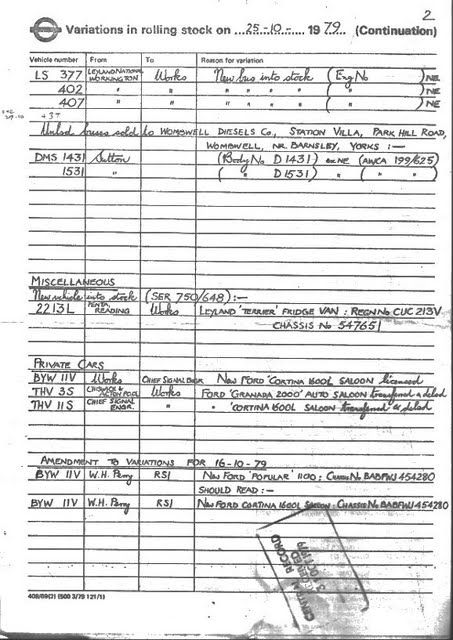 2
Variations in rolling stock on 25-10- 1979 (Continuation)
Vehicle number From To Reason for variation
LS 377 LEYLAND NATIONAL WORKINGTON Works New bus into stock (Eng No )NE
402 " " " " " " ( " )NE
407 " " " " " " ( " )NE
Unlsd buses sold to WOMBWELL DIESELS Co., STATION VILLA, PARK HILL ROAD,
WOMBWELL, NR. BARNSLEY, YORKS :—
DMS 1431 Sutton (Body No D 1431) ex NE (AWCA 199/625)
1531 " ( " D 1531) " ( " " )
MISCELLANEOUS
New vehicle into stock (SER 750/648) :—
2213L PENTA, READING Works LEYLAND 'TERRIER' FRIDGE VAN : REGN No CUC 213V
CHASSIS No 547651
PRIVATE CARS
BYW 11V Works CHIEF SIGNAL ENGR. NEW FORD 'CORTINA 1600L SALOON licensed
THV 3S CHISWICK & ACTON POOL Works FORD 'GRANADA 2000' AUTO SALOON transferred & delsd
THV 11S CHIEF SIGNAL ENGR. " " 'CORTINA 1600L SALOON transferred & delsd
AMENDMENT TO VARIATIONS FOR 16-10-79
BYW 11V W.H. Perry RSI NEW FORD 'POPULAR' 1100 : CHASSIS No BABFWJ 454280
SHOULD READ :—
BYW 11V W.H. Perry RSI NEW FORD CORTINA 1600L SALOON : CHASSIS No BABFWJ 454280
CENTRAL RECORD
31 OCT 1979
408/69(2) (500 3/79 121/1)